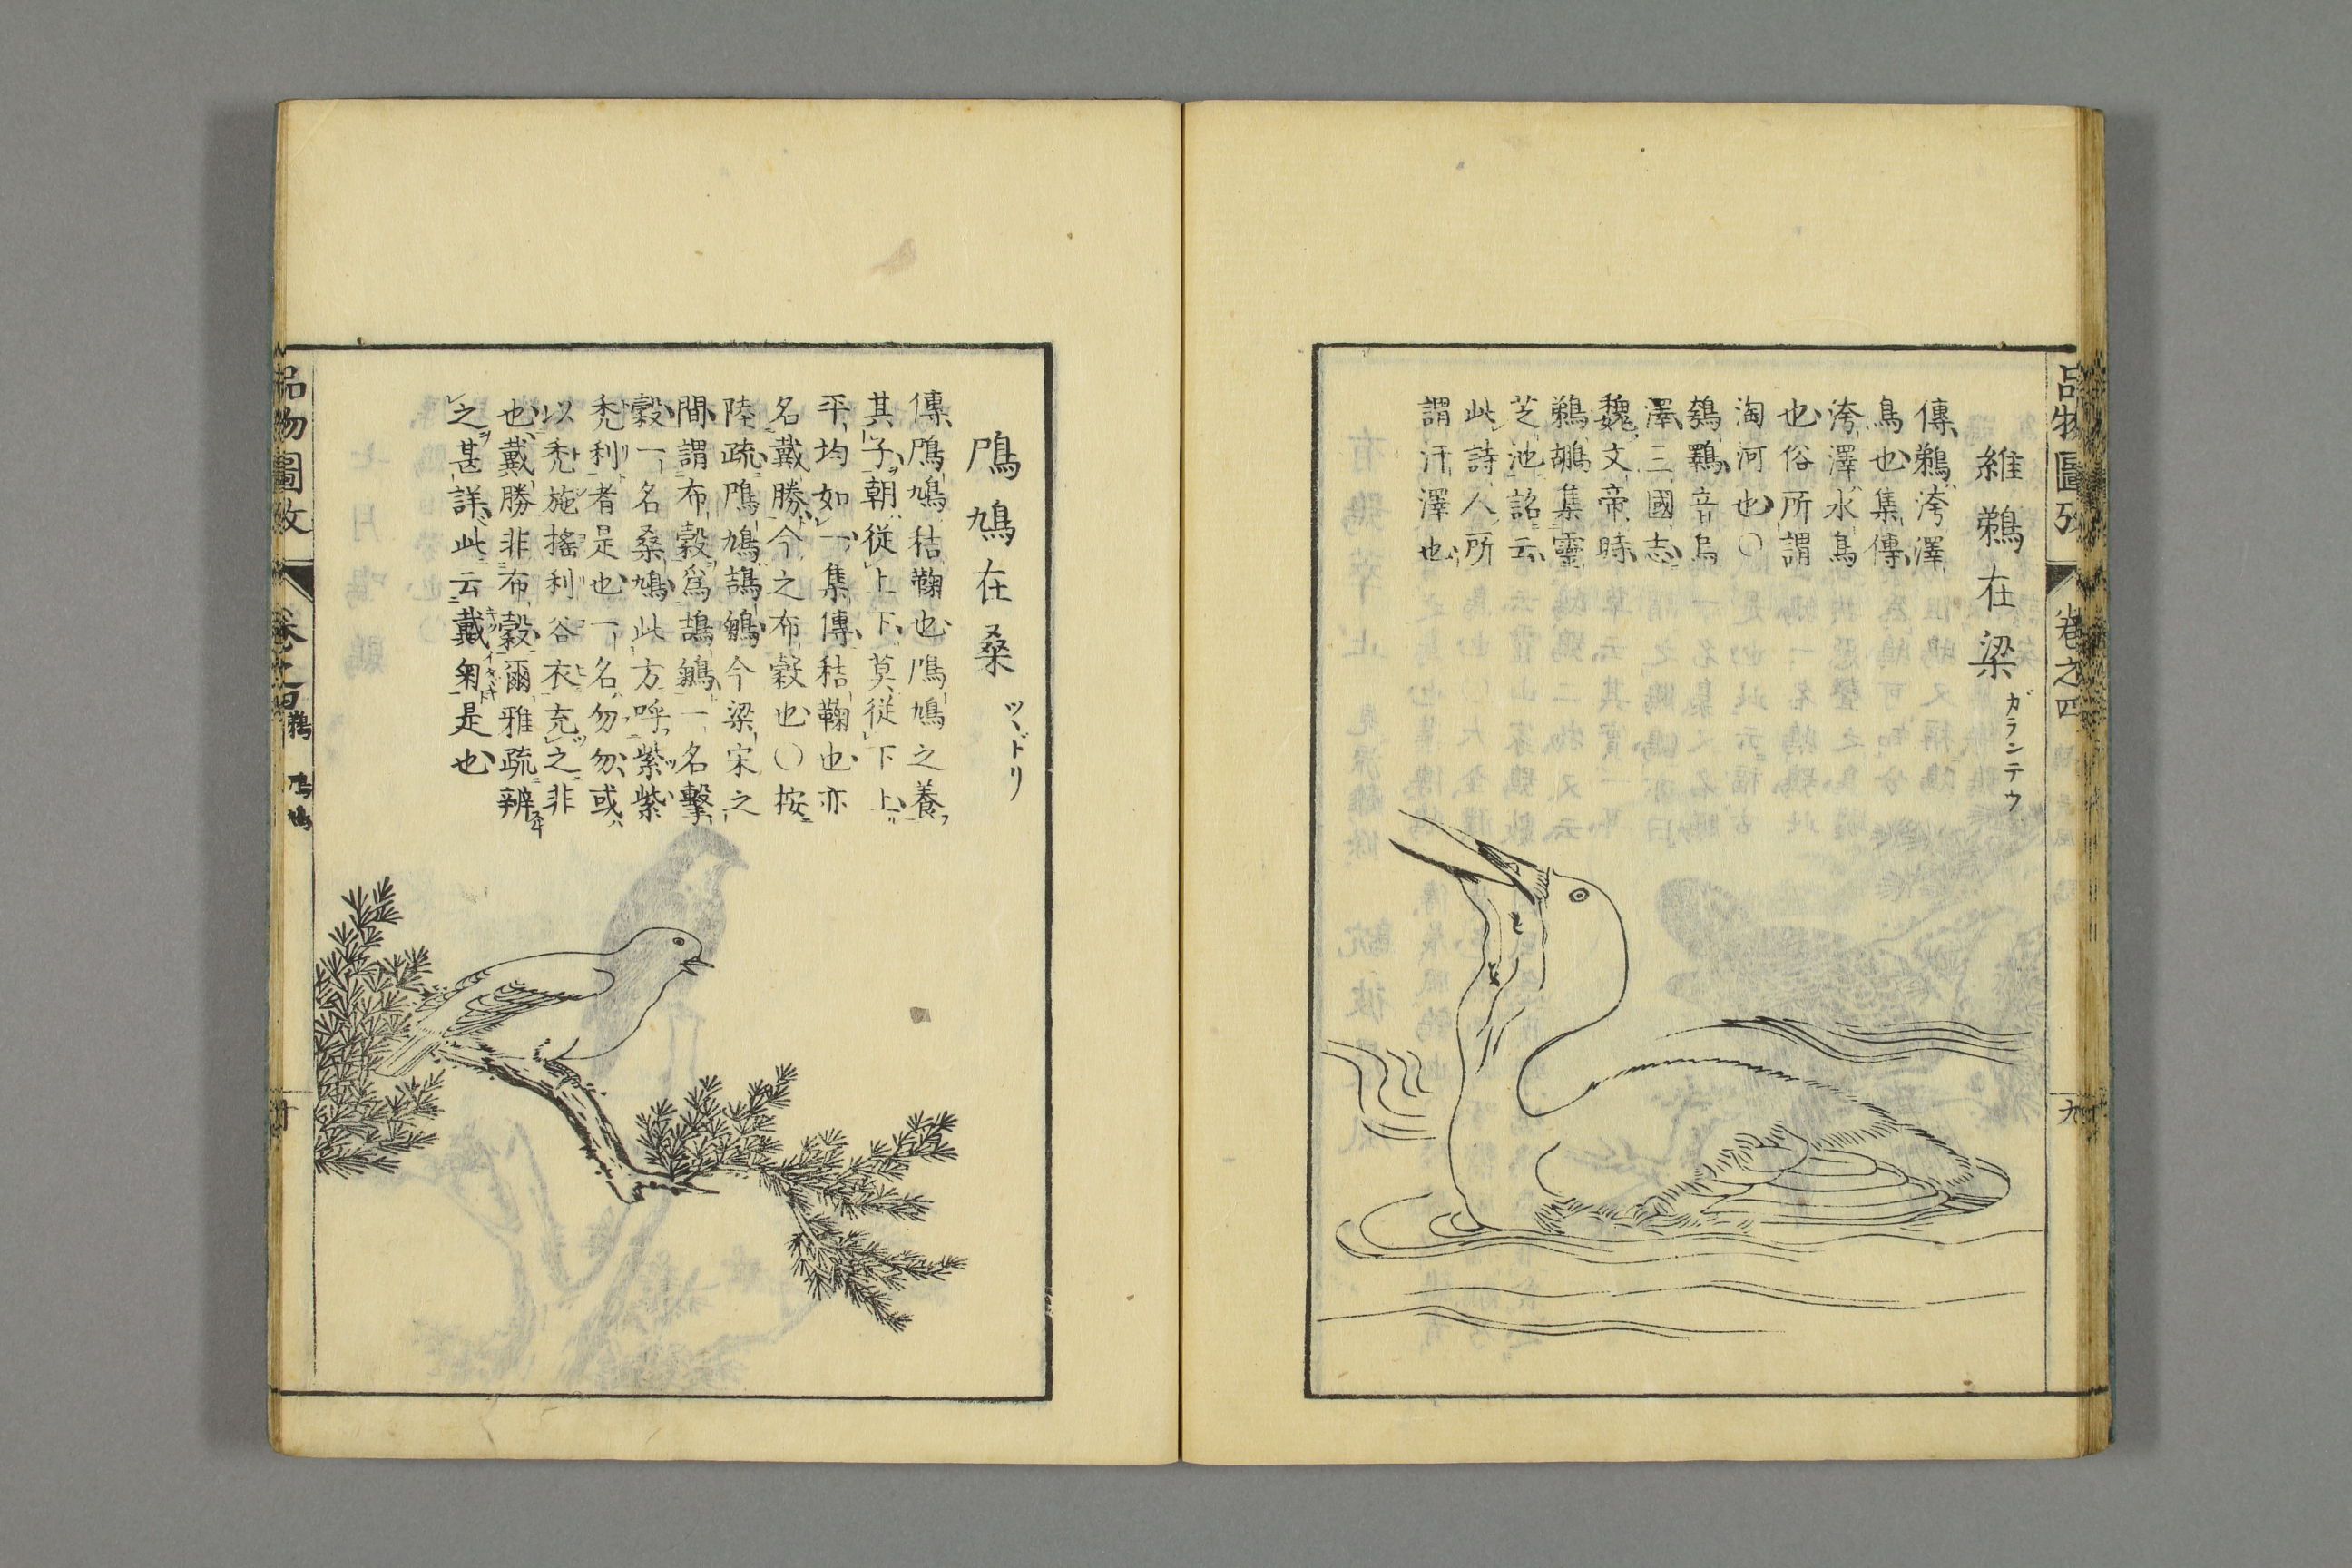 品物圖攷
卷之四
九
維鵜在梁
ガランテウ
傳鵜洿澤
鳥也集傳
洿澤水鳥
也俗所謂
淘河也〇
鴮鸅音烏
澤三國志
魏文帝時
鵜鶘集靈
芝池詔云
此詩人所
謂汙澤也
鳲鳩在桑
ツヽドリ
傳鳲鳩秸鞠也鳲鳩之養
其子朝從上下莫從下上
平均如一集傳秸鞠也亦
名戴勝今之布穀也〇按
陸疏鳲鳩鴶鵴今梁宋之
間謂布穀爲鴶鵴一名擊
穀一名桑鳩此方呼紫紫
禿利者是也一名勿勿或
以禿施搖利谷衣充之非
也戴勝非布穀爾雅疏辨
之甚詳此云戴菊是也
キクイタヾキ
品物圖攷
卷之四
鵜
鳲鳩